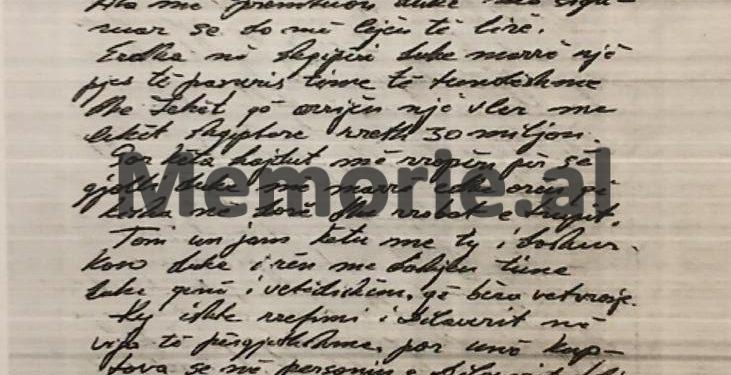 Ata më premtuan duke më sigu-
ruar se do më lijën të lirë.
Erdha në Shqipëri duke marrë një
pjes të pasuris time të tundëshme
dhe lekët që arrijën një vler me
lekët shqiptare rreth 30 miljon.
Por këta hajdut më rropën për së
gjalli, duke më marrë edhe orën që
kisha në dorë dhe rrobat e trupit.
Tani un jam këtu me ty i
duke i rën me kokën time
duke qenë i vetëdishëm, që bëra vetvrasje.
Ky ishte rrëfimi i Dilaverit në
vija të përgjithshme, por unë kup-
tova se në personin e
Memorie.al